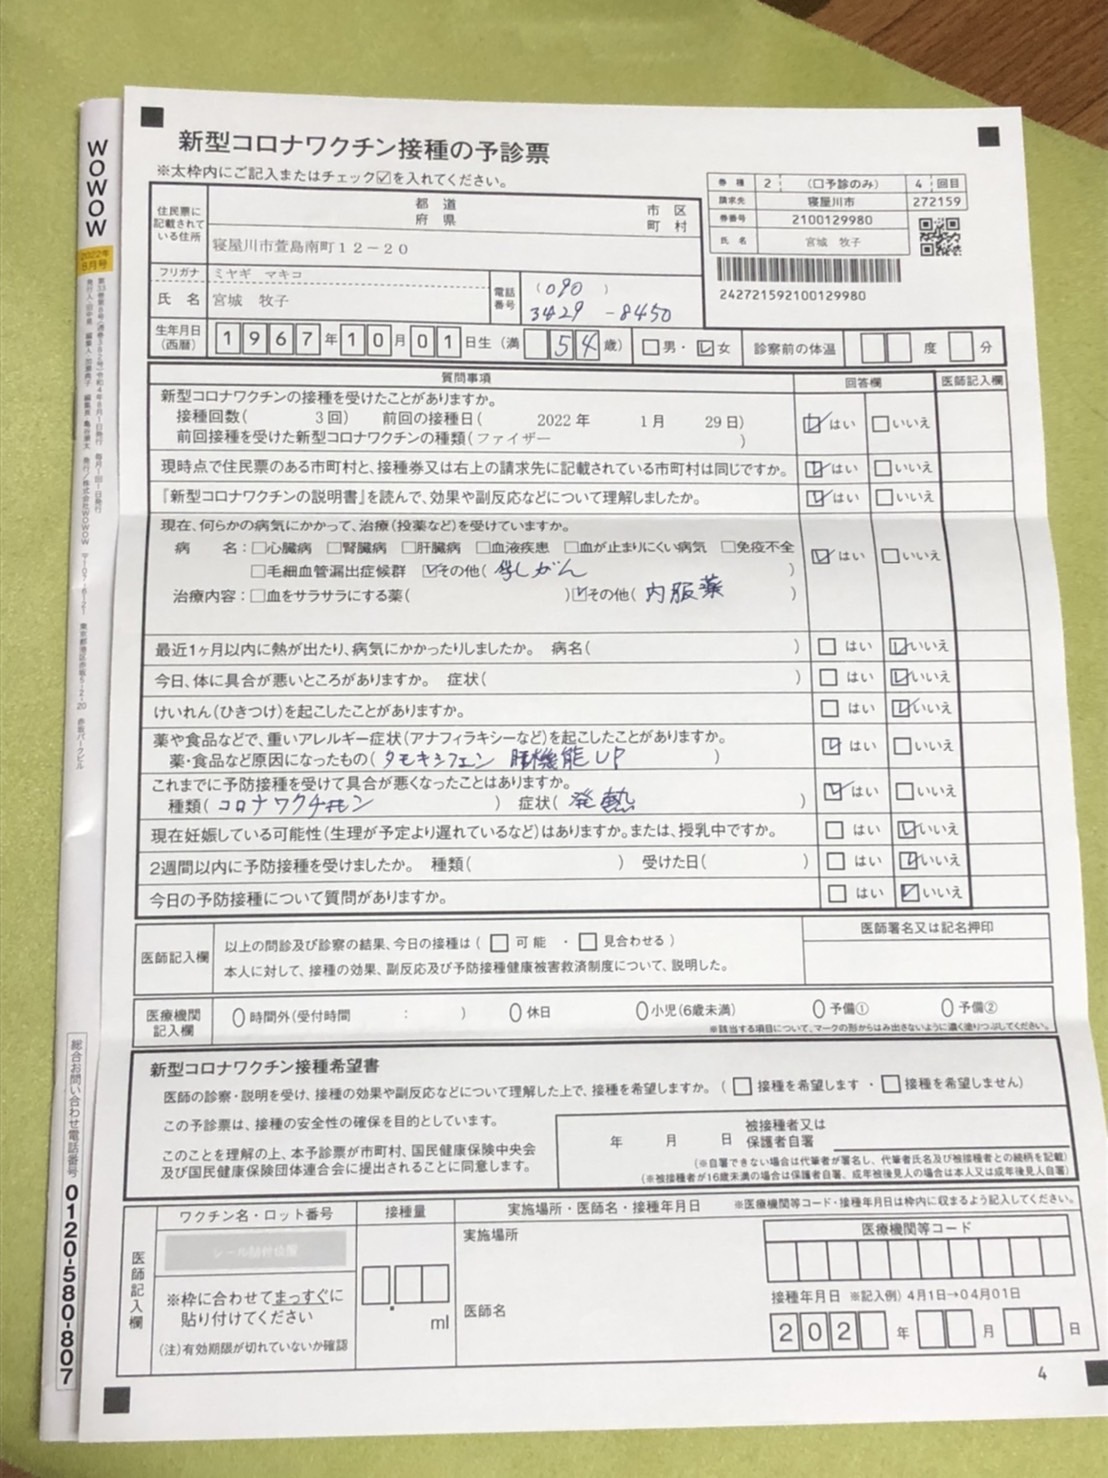 新型コロナワクチン接種の予診票
※太枠内にご記入またはチェック☑を入れてください。
券種 2 (口予診のみ) 4 回目
請求先 寝屋川市 272159
券番号 2100129980
氏名 宮城 牧子
242721592100129980
住民票に記載されている住所
都道府県 市区町村
寝屋川市萱島南町12-20
フリガナ ミヤギ マキコ
氏名 宮城 牧子
電話番号 (090) 3429-8450
生年月日(西暦) 1967年10月01日生(満 54歳) □男・☑女 診察前の体温 度 分
質問事項 回答欄 医師記入欄
新型コロナワクチンの接種を受けたことがありますか。
接種回数( 3回) 前回の接種日( 2022年 1月 29日) ☑はい □いいえ
前回接種を受けた新型コロナワクチンの種類(ファイザー )
現時点で住民票のある市町村と、接種券又は右上の請求先に記載されている市町村は同じですか。 ☑はい □いいえ
『新型コロナワクチンの説明書』を読んで、効果や副反応などについて理解しましたか。 ☑はい □いいえ
現在、何らかの病気にかかって、治療(投薬など)を受けていますか。
病名:□心臓病 □腎臓病 □肝臓病 □血液疾患 □血が止まりにくい病気 □免疫不全 ☑はい □いいえ
□毛細血管漏出症候群 ☑その他( 乳がん )
治療内容:□血をサラサラにする薬( )☑その他( 内服薬 )
最近1ヶ月以内に熱が出たり、病気にかかったりしましたか。 病名( ) □はい ☑いいえ
今日、体に具合が悪いところがありますか。 症状( ) □はい ☑いいえ
けいれん(ひきつけ)を起こしたことがありますか。 □はい ☑いいえ
薬や食品などで、重いアレルギー症状(アナフィラキシーなど)を起こしたことがありますか。 ☑はい □いいえ
薬・食品など原因になったもの( タモキシフェン 肝機能UP )
これまでに予防接種を受けて具合が悪くなったことはありますか。 ☑はい □いいえ
種類( コロナワクチン ) 症状( 発熱 )
現在妊娠している可能性(生理が予定より遅れているなど)はありますか。または、授乳中ですか。 □はい ☑いいえ
2週間以内に予防接種を受けましたか。 種類( ) 受けた日( ) □はい ☑いいえ
今日の予防接種について質問がありますか。 □はい ☑いいえ
医師記入欄
以上の問診及び診察の結果、今日の接種は( □可能 ・ □見合わせる )
本人に対して、接種の効果、副反応及び予防接種健康被害救済制度について、説明した。
医師署名又は記名押印
医療機関記入欄 時間外(受付時間 : ) 休日 小児(6歳未満) 予備① 予備②
※該当する項目について、マークの形からはみ出さないように濃く塗りつぶしてください。
新型コロナワクチン接種希望書
医師の診察・説明を受け、接種の効果や副反応などについて理解した上で、接種を希望しますか。( □接種を希望します ・ □接種を希望しません)
この予診票は、接種の安全性の確保を目的としています。
このことを理解の上、本予診票が市町村、国民健康保険中央会
及び国民健康保険団体連合会に提出されることに同意します。
年 月 日 被接種者又は保護者自署
(※自署できない場合は代筆者が署名し、代筆者氏名及び被接種者との続柄を記載)
(※被接種者が16歳未満の場合は保護者自署、成年被後見人の場合は本人又は成年後見人自署)
医師記入欄
ワクチン名・ロット番号 接種量 実施場所・医師名・接種年月日 ※医療機関等コード・接種年月日は枠内に収まるよう記入してください。
シール貼付位置
※枠に合わせてまっすぐに
貼り付けてください
(注)有効期限が切れていないか確認
ml
実施場所
医師名
医療機関等コード
接種年月日 ※記入例)4月1日→04月01日
202 年 月 日
4
WOWOW
2022年
9月号
総合お問い合わせ電話番号 0120-580-807